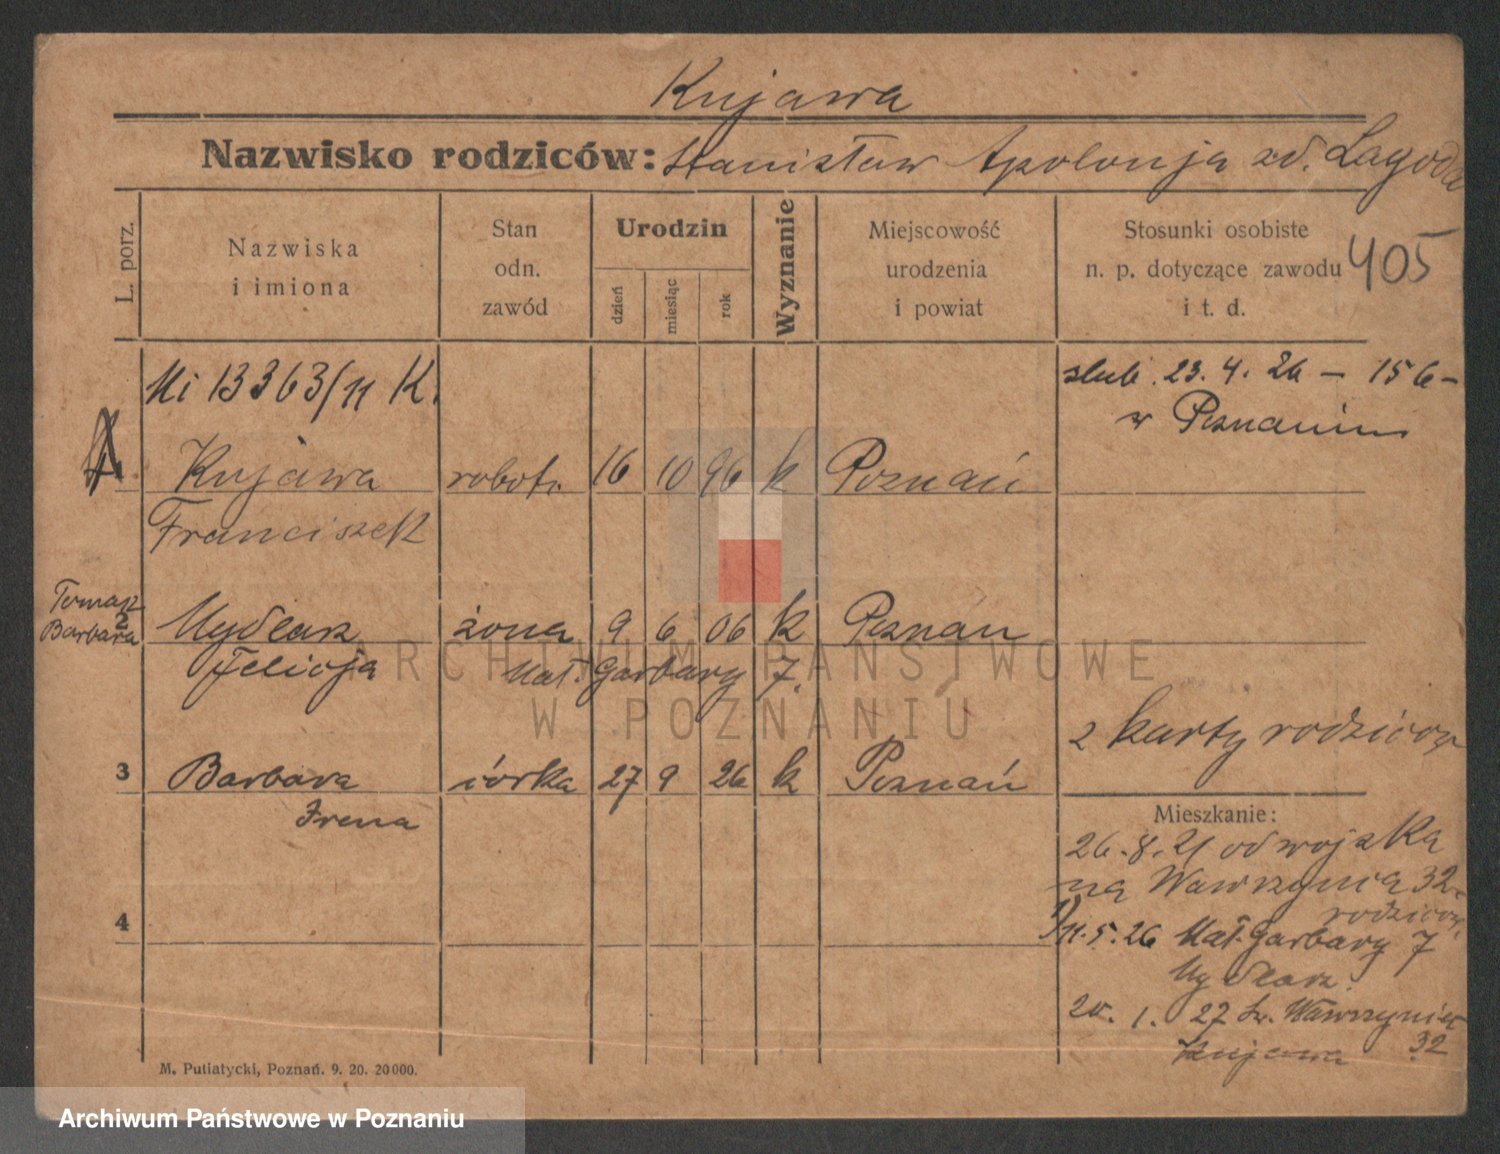 Kujawa
Nazwisko rodziców: Stanisław Apolonja zd. Lagoda
L. porz.
Nazwiska i imiona
Stan odn. zawód
Urodzin
dzień miesiąc rok
Wyznanie
Miejscowość urodzenia i powiat
Stosunki osobiste n. p. dotyczące zawodu i t. d.
405
13363/11 K.
ślub. 23. 4. 26 — 156 —
w Poznaniu
1 Kujawa robotn. 16 10 96 k Poznań
Franciszek
Tomasz
Barbara
2 Mydlarz żona 9 6 06 k Poznań
Felicja Mał. Garbary 7.
2 karty rodziców
3 Barbara córka 27 9 26 k Poznań
Irena
Mieszkanie:
26.8.21 od wojska
na Wawrzynia 32
rodziców
4
1) 11.5.26 Mał. Garbary 7
Mydlarz.
20. 1. 27 św. Wawrzyniec 32
Kujawa
M. Putiatycki, Poznań. 9. 20. 20000.
ARCHIWUM PAŃSTWOWE
W POZNANIU
Archiwum Państwowe w Poznaniu